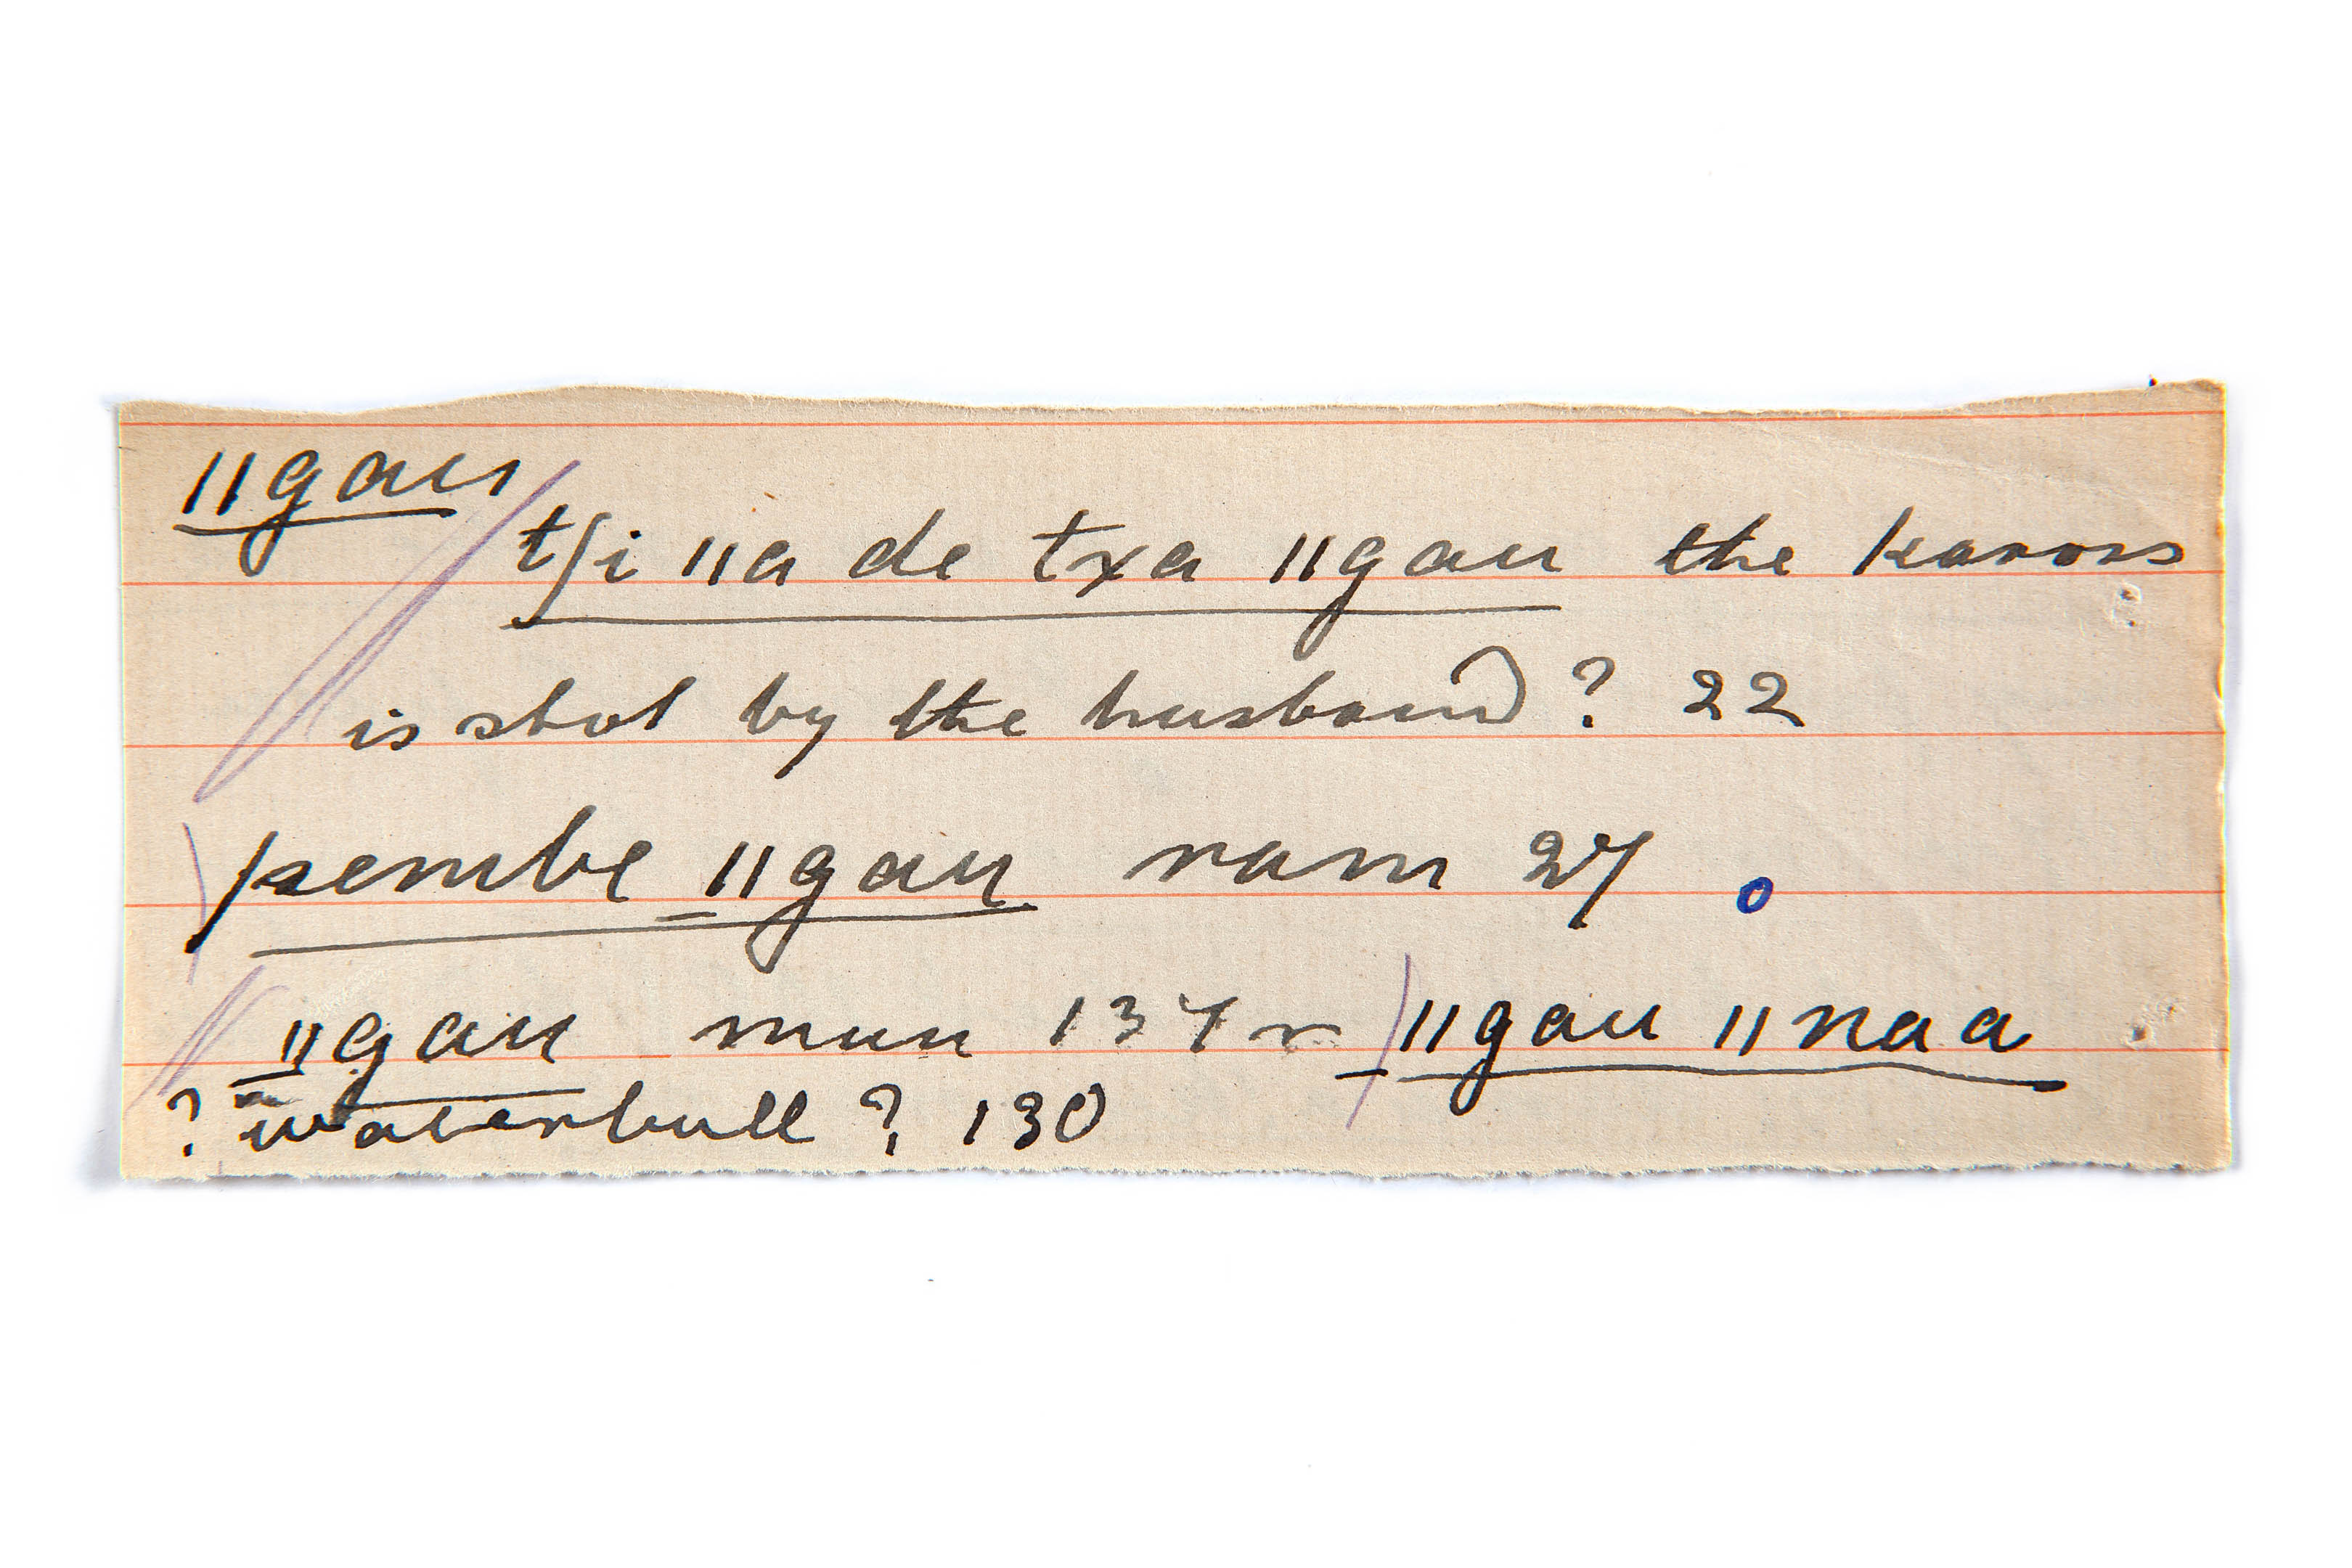 ǁgau
tʃi ǁa de txa ǁgau the kaross
is shot by the husband ? 22
pembe ǁgau ram 27
ǁgau mun 137 r ǁgau ǁnaa
? waterbull ? 130